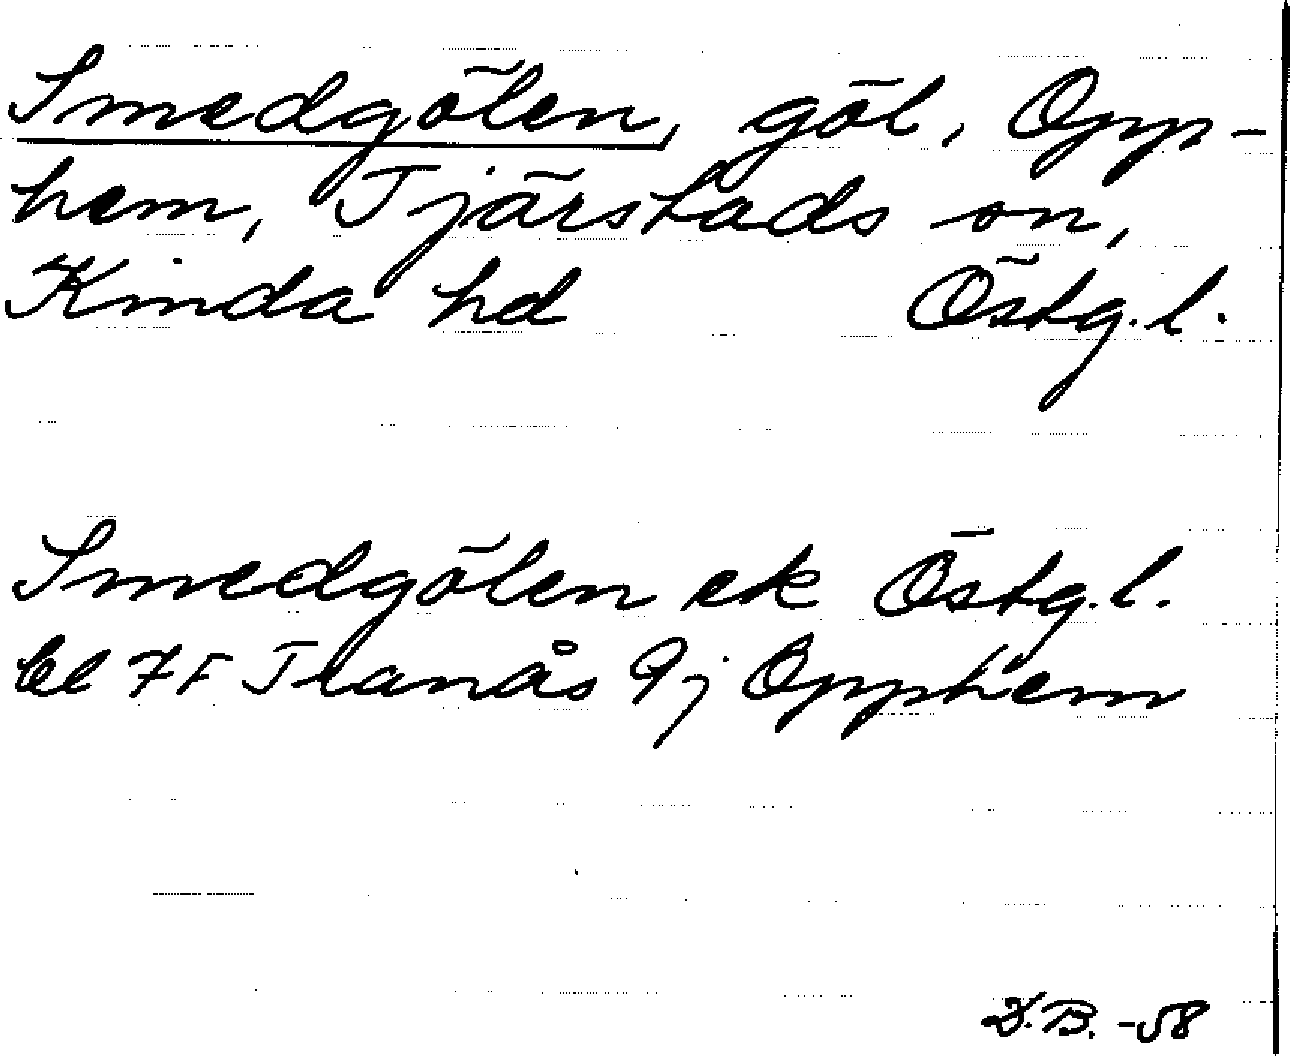 Smedgölen, göl, Opp-
hem, Tjärstads sn,
Kinda hd Östg.l.
Smedgölen ek Östg.l.
bl 7F Tranås 9j Opphem
D.B. -58